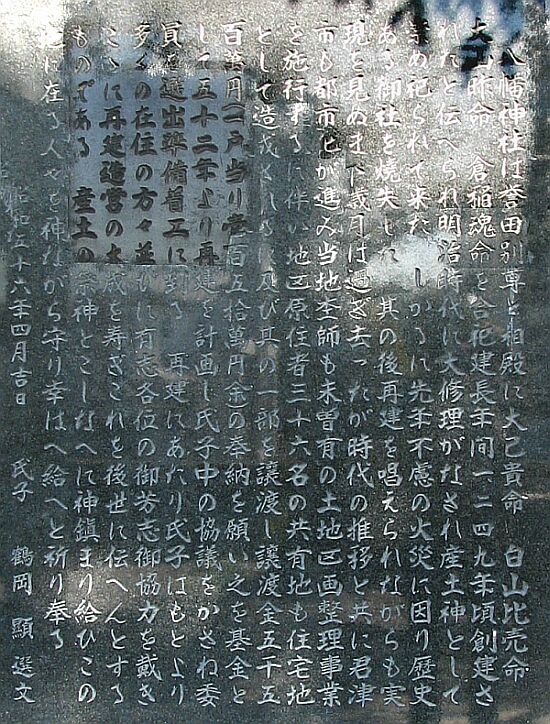 八幡神社は誉田別尊と相殿に大己貴命　白山比売命
大山咋命　倉稲魂命を合祀建長年間一二四九年頃創建さ
れたと伝へられ明治時代に大修理がなされ産土神として
崇め祀られて来た　しかるに先年不慮の火災に因り歴史
ある御社を焼失した　其の後再建を唱えられながらも実
現を見ぬまゝ歳月は過ぎ去ったが時代の推移と共に君津
市も都市化が進み当地杢師も未曽有の土地区画整理事業
を施行するに伴い地区原住者三十六名の共有地も住宅地
として造成されるに及び其の一部を譲渡し譲渡金五千五
百萬円(一戸当り壱百五拾萬円余)の奉納を願い之を基金と
して五十二年より再建を計画し氏子中の協議をかさね委
員を選出準備着工に到る　再建にあたり氏子はもとより
多々の在住の方々並びに有志各位の御芳志御協力を戴き
こゝに再建造営の大成を寿ぎこれを後世に伝へんとする
ものである　産土の大神とこしなへに神鎮まり給ひこの
地に在る人々を神ながら守り幸はへ給へと祈り奉る
昭和五十六年四月吉日　氏子　鶴岡　顯　選文